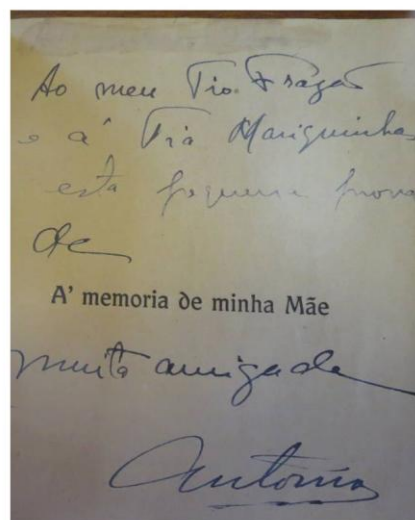 Ao meu Tio Fragoso
e á Tia Mariquinhas
esta pequena prova
de
A' memoria de minha Mãe
muita amizade
Antonio